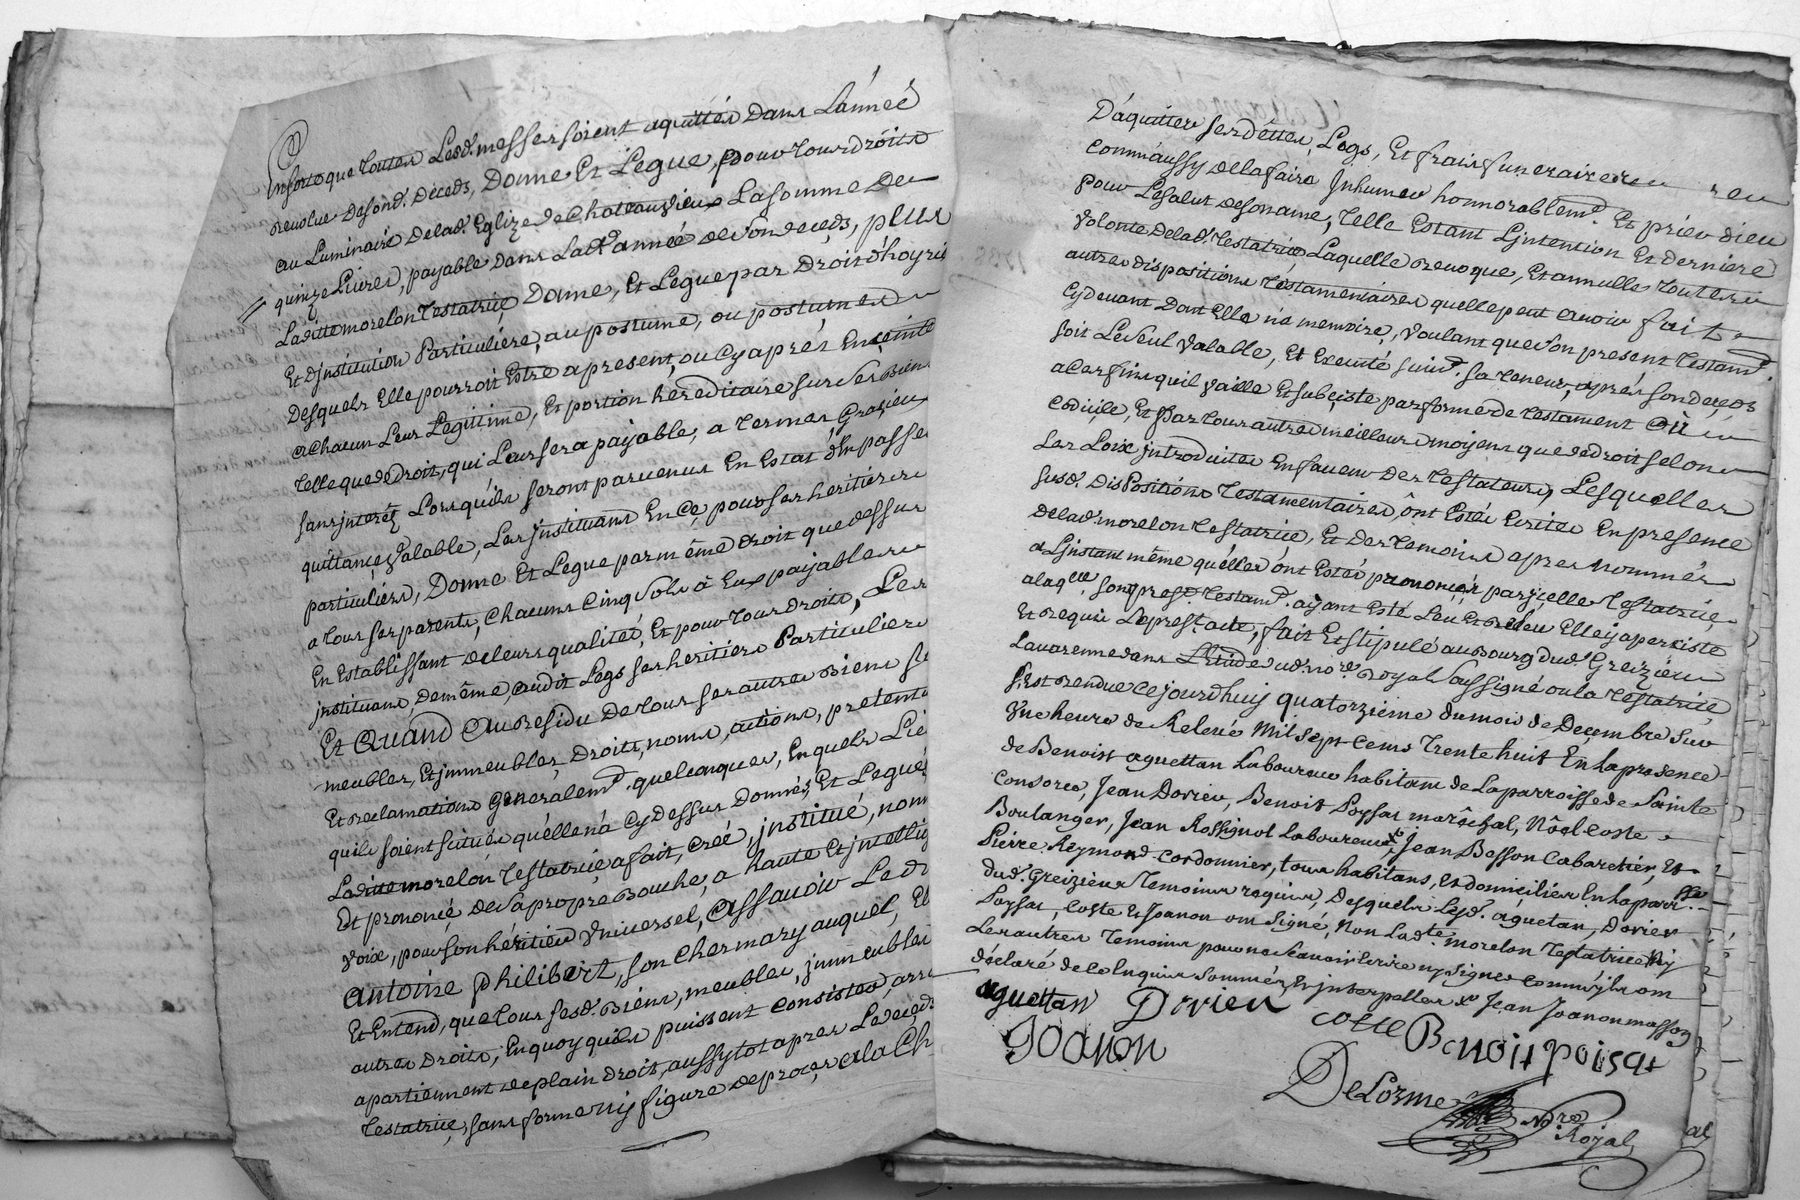 Ensorteque Touttes Lesd. messes soient aquittés Dans L'année
revolue Desond. Déceds, Donne Et Legue, pour tous droits
au Luminaire Delad. Eglize de Chateauvieux La somme De
quinze Livres, payable Dans Lad. année de son deceds, plus
Laditte morelon Testatrice Donne, Et Legue par Droit d'hoyrie
Et Jnstitution Particulière, au postume, ou postumes
Desquels Elle pourroit Estre apresent, ou Cyaprés Enceinte
achacun Leur Legitime, Et portion hereditaire sur ses Biens
Telle que de Droit, qui Leur sera payable, a termes Grazieux
sans jnterêtz Lorsquils seront parvenus En Estat d'En passer
quittance valable, Les jnstituans En ce, pour ses heritiers
particuliers, Donne Et Legue par même droit que dessus
a tous ses parents, chacuns cinq sols à Eux payables
En Establissant de leurs qualités, Et pour tous droits, Les
jnstituans demême, audit Legs ses heritiers Particuliers
Et Quand Au Residu De tous ses autres Biens
meubles, Et jmmeubles, Droits, noms, actions, pretentions
Et reclamations Generalem.t quelconques, En quels Lieux
quils soient scitués qu'elle n'a Cydessus Donnés, Et Legués
Laditte morelon Testatrice a fait, Créé, jnstitué, nommé
Et prononcé, de sa propre Bouche, a haute Et jntelligible
voix, pour son héritier Universel, Assavoir Led.
Antoine Philibert, son Cher mary auquel, Elle
Et Entend, que tous sesd. Biens, meubles, jmmeubles
autres Droits, En quoy quils puissent consister,
apartiennent de plain droit, aussytot apres Le deceds
Testatrice, sans forme ny figure de procez a la Ch
D'aquitter ses déttes, Legs, Et frais funeraires
Comm'aussy de la faire Jnhumer honnorablem.t Et prier dieu
pour Le salut de son ame, Telle Estant L'jntention Et derniere
volonté delad. Testatrice Laquelle revoque, Et annulle toutes
autres dispositions Testamentaires quelle peut avoir fait
Cydevant Dont Elle n'a memoire, voulant que son present Testam.t
soit Le seul valable, Et Executé suiv.t sa teneur, aprés son deceds
a Ces fins quil vaille Et subciste par forme de testament Où
Codicile, Et par tous autres meilleurs moyens que de droit selon
Les Loix, jntroduites En faveur Des Testateurs, Lesquelles
susd. Dispositions Testamentaires, ônt Estés Ecrites En presence
delad. morelon Testatrice, Et des temoins apres nommés
a L'jnstant même qu'elles ônt Estés prononcés par jcelle Testatrice
a laq.lle son pres.t Testam.t ayant Esté Leu Et releu Elle y a persisté
Et requis Le pres.t acte, fait Et stipulé au Bourg dud. Greizieu
Lavarenne dans L'Etude ud. no.re Royal soussigné ou la Testatrice
s'est rendue Ce jourdhuy quatorziéme du mois de Decembre sur
Une heure de Relevé Mil sept cens trente huit En la presence
de Benoist aguettan Laboureur habitant de La parroisse de Sainte
Consorce, Jean Dorier, Benoist Poyssat maréchal, Nôel Coste
Boulanger, Jean Rossignol Laboureur, Jean Besson Cabaretier, Et
Pierre Reymond Cordonnier, tous habitans, et domiciliés En la parr.sse
dud. Greizieu Temoins requis, Desquels Lesd. aguetan, Dorier
Poyssat, Coste Et Joanon ont signé, Non Lad.te morelon Testatrice Ny
Les autres Temoins pour ne scavoir Ecrire ny signer Comm'jls ont
déclaré de ce Enquis sommés, Et jnterpellés Jean Joanon masson
aguettan Dorier coste Benoit poisat
Joanon
DeLorme
No.re
Royal